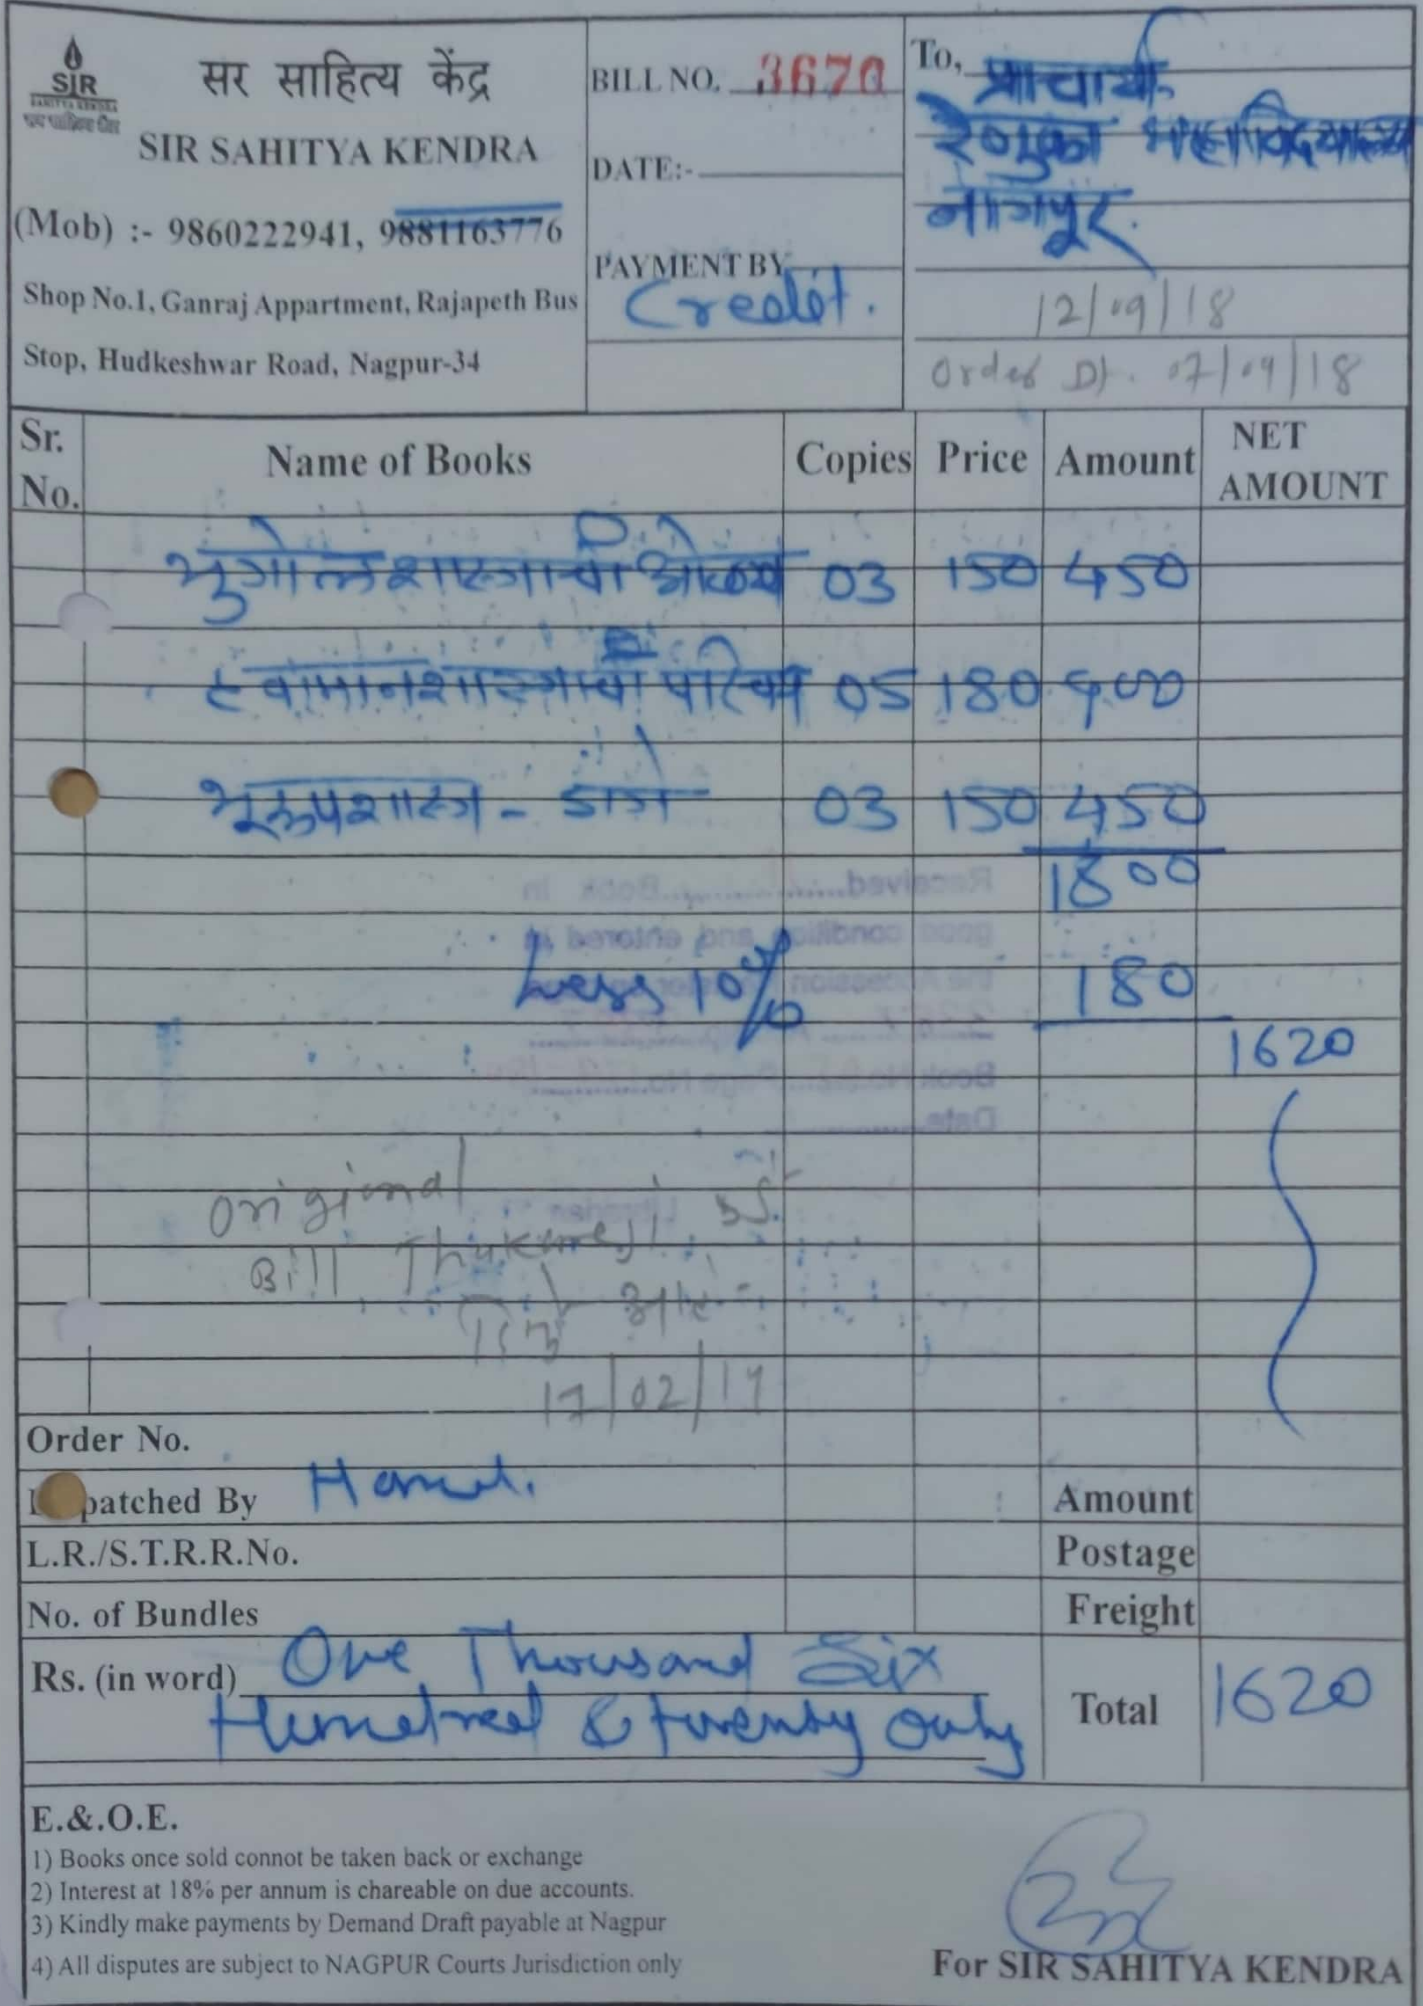 SIR
सर साहित्य केंद्र
SIR SAHITYA KENDRA
(Mob) :- 9860222941, 9881163776
Shop No.1, Ganraj Appartment, Rajapeth Bus
Stop, Hudkeshwar Road, Nagpur-34
BILL NO. 3670
DATE:-
PAYMENT BY
Credit.
To, प्राचार्य
रेणुका महाविद्यालय
नागपूर.
12/09/18
Order Dt. 07/09/18
Sr. No. Name of Books Copies Price Amount NET AMOUNT
भुगोलशास्त्राची ओळख 03 150 450
हवामानशास्त्राचा परिचय 05 180 900
भूरूपशास्त्र - डांगे 03 150 450
1800
Less 10% 180
1620
Original
Bill
17/02/19
Order No.
Dispatched By Hand. Amount
L.R./S.T.R.R.No. Postage
No. of Bundles Freight
Rs. (in word) One Thousand Six
Hundred & twenty only
Total 1620
E.&.O.E.
1) Books once sold connot be taken back or exchange
2) Interest at 18% per annum is chareable on due accounts.
3) Kindly make payments by Demand Draft payable at Nagpur
4) All disputes are subject to NAGPUR Courts Jurisdiction only
For SIR SAHITYA KENDRA